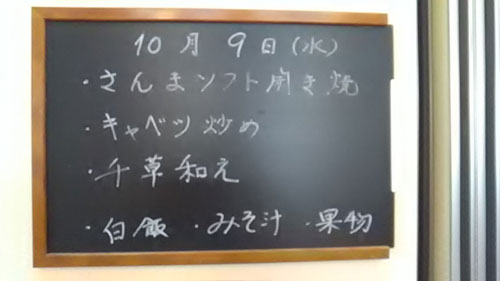 10月9日(水)
・さんまソフト開き焼
・キャベツ炒め
・千草和え
・白飯 ・みそ汁 ・果物